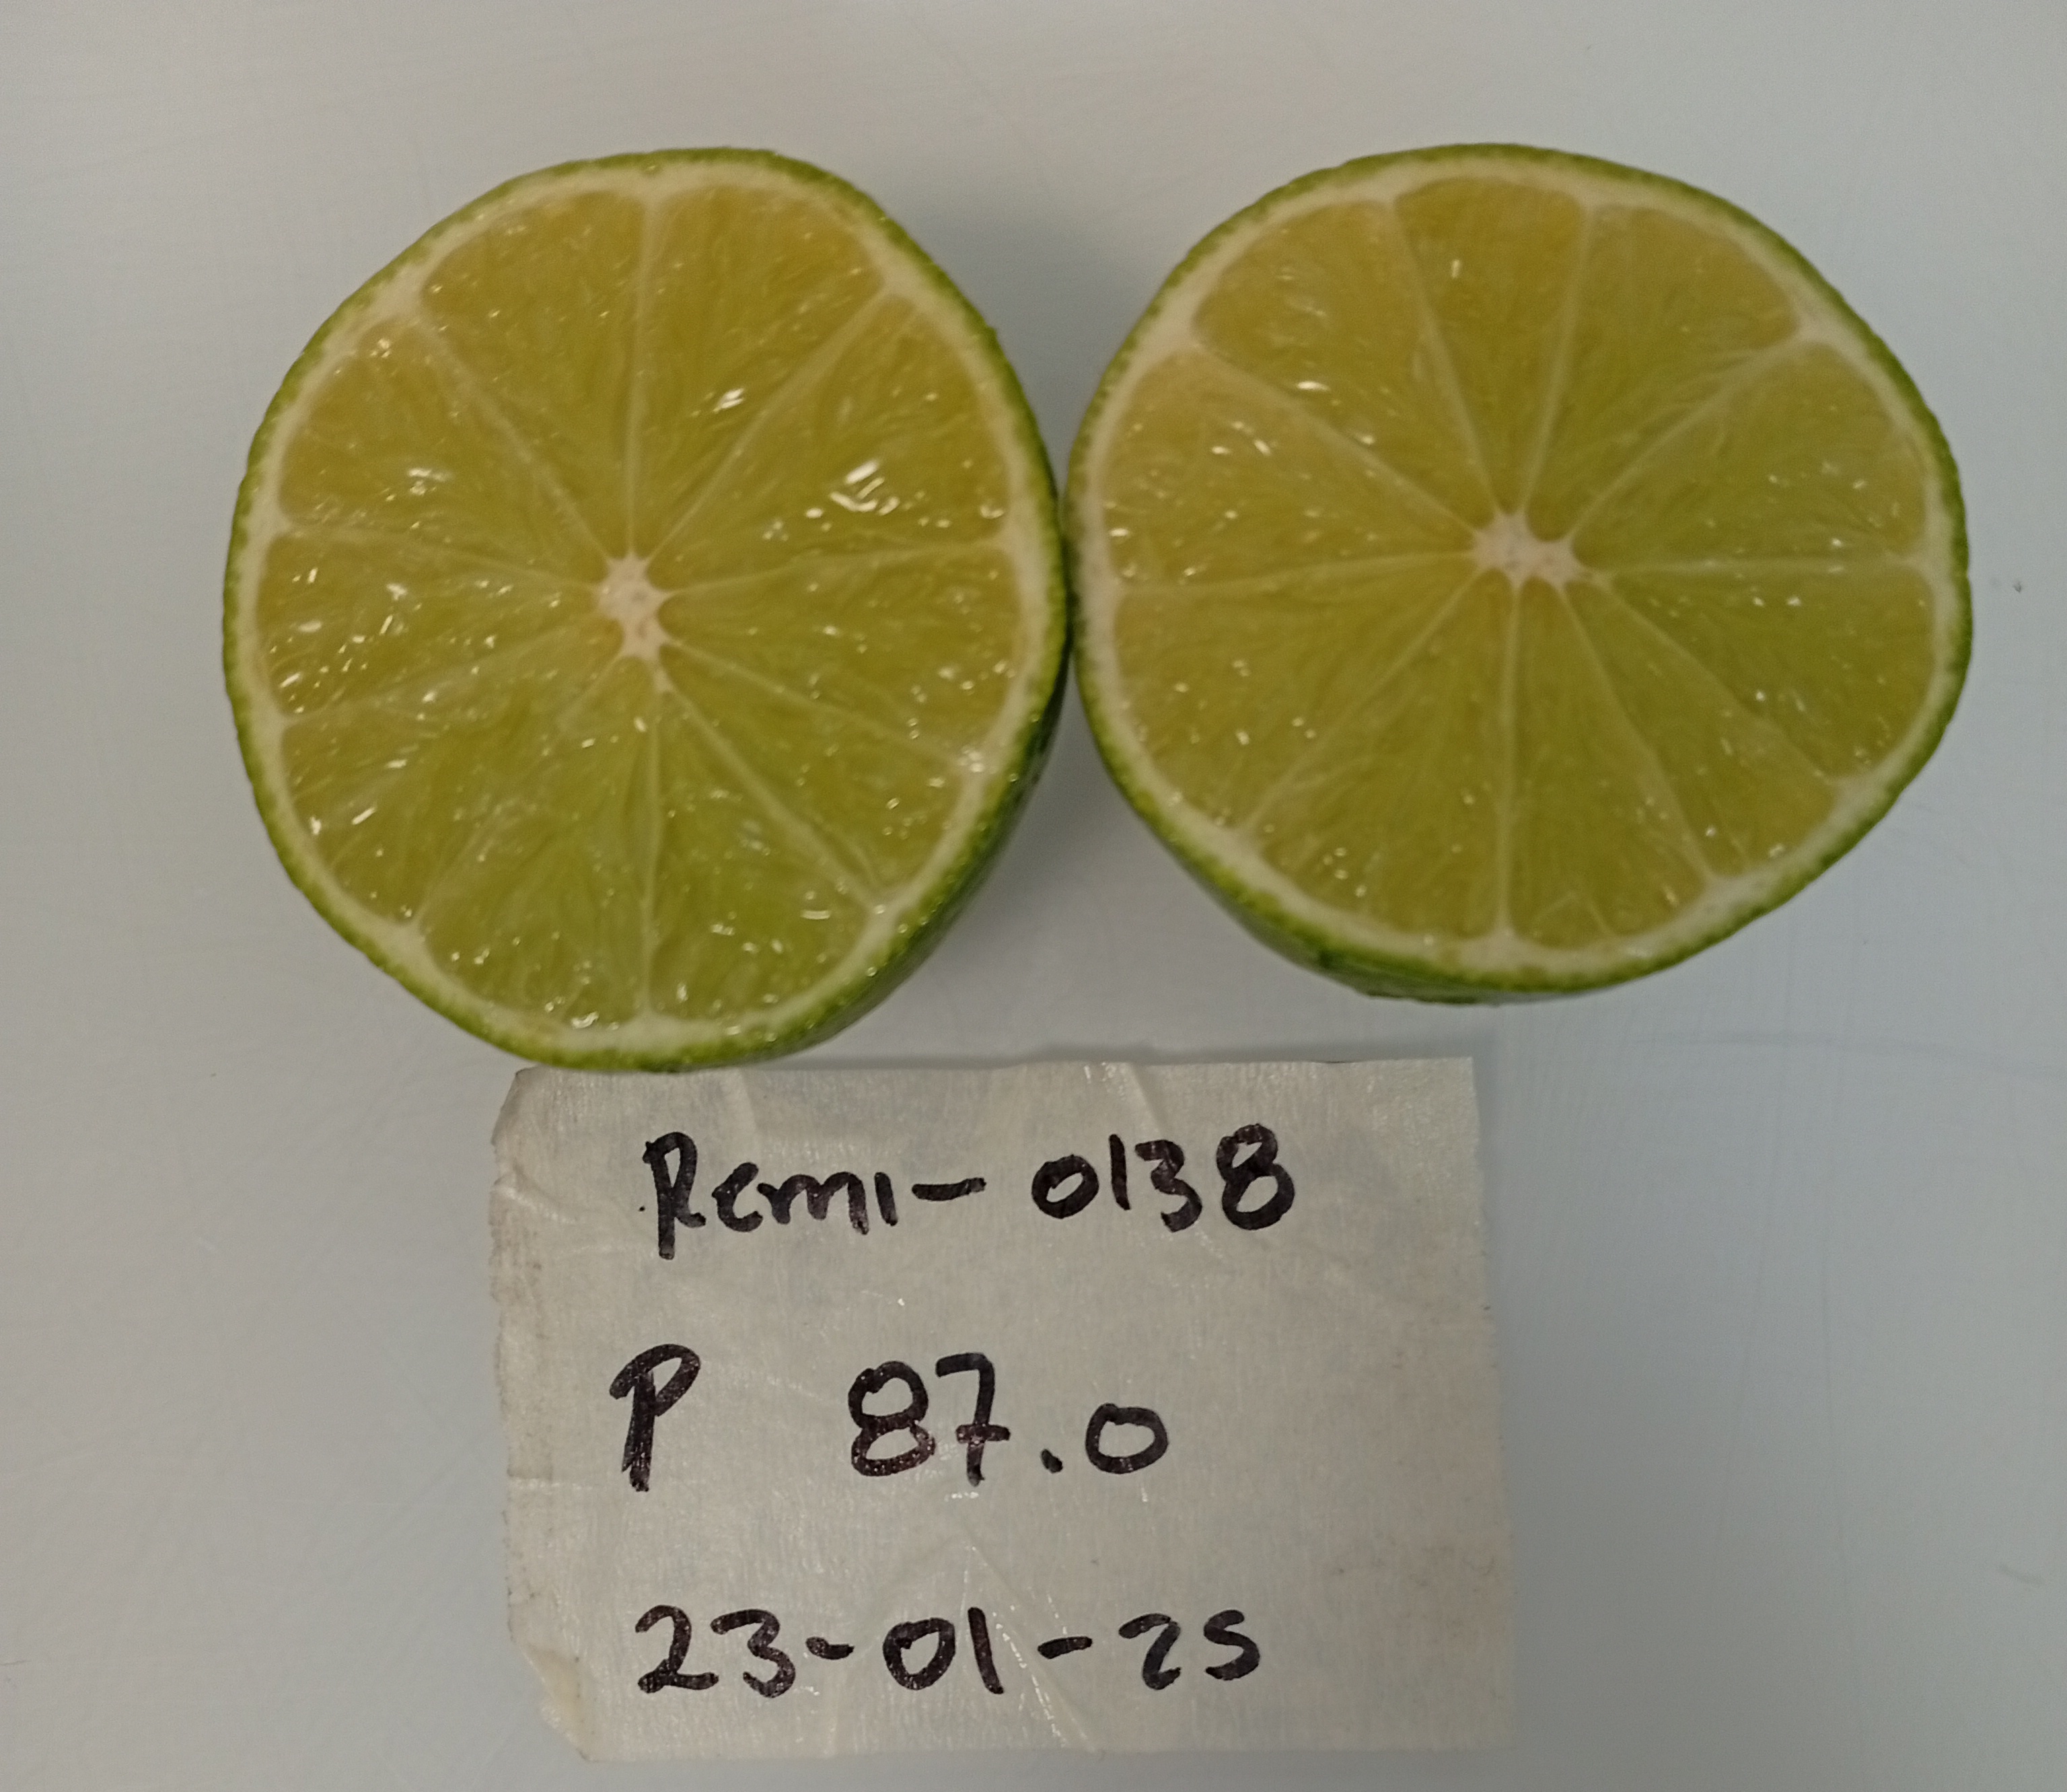 Remi-0138
P 87.0
23-01-25